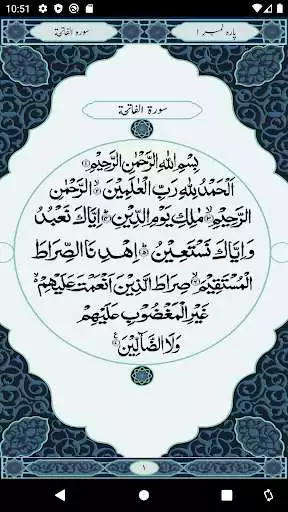 10:51
سورة الفاتحة
پارہ نمبر ۱
سورة الفاتحة
بِسْمِ اللهِ الرَّحْمٰنِ الرَّحِيْمِ
اَلْحَمْدُ لِلّٰهِ رَبِّ الْعٰلَمِيْنَ ۙ الرَّحْمٰنِ
الرَّحِيْمِ ۙ مٰلِكِ يَوْمِ الدِّيْنِ ؕ اِيَّاكَ نَعْبُدُ
وَاِيَّاكَ نَسْتَعِيْنُ ؕ اِهْدِنَا الصِّرَاطَ
الْمُسْتَقِيْمَ ۙ صِرَاطَ الَّذِيْنَ اَنْعَمْتَ عَلَيْهِمْ ۙ
غَيْرِ الْمَغْضُوْبِ عَلَيْهِمْ
وَلَا الضَّآلِّيْنَ
۱